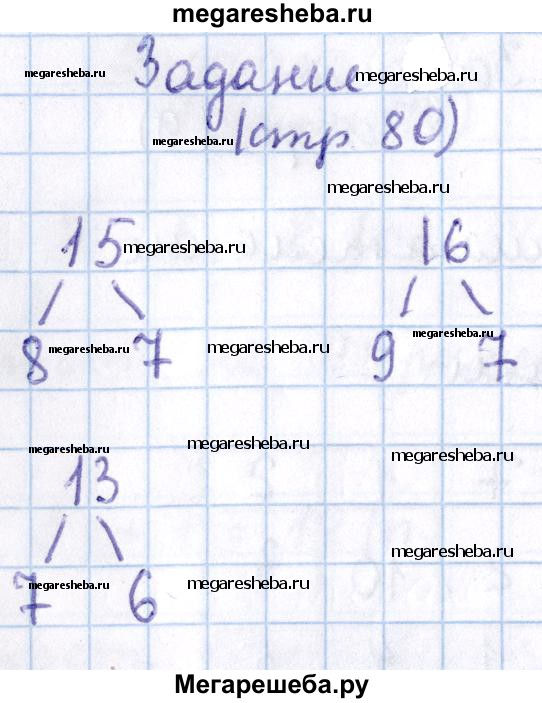 megaresheba.ru
Задание
megaresheba.ru megaresheba.ru
(стр 80)
megaresheba.ru
megaresheba.ru
15 megaresheba.ru 16
8 megaresheba.ru 7 megaresheba.ru 9 megaresheba.ru 7
megaresheba.ru megaresheba.ru megaresheba.ru
13
megaresheba.ru
7 megaresheba.ru 6 megaresheba.ru
Мегарешеба.ру